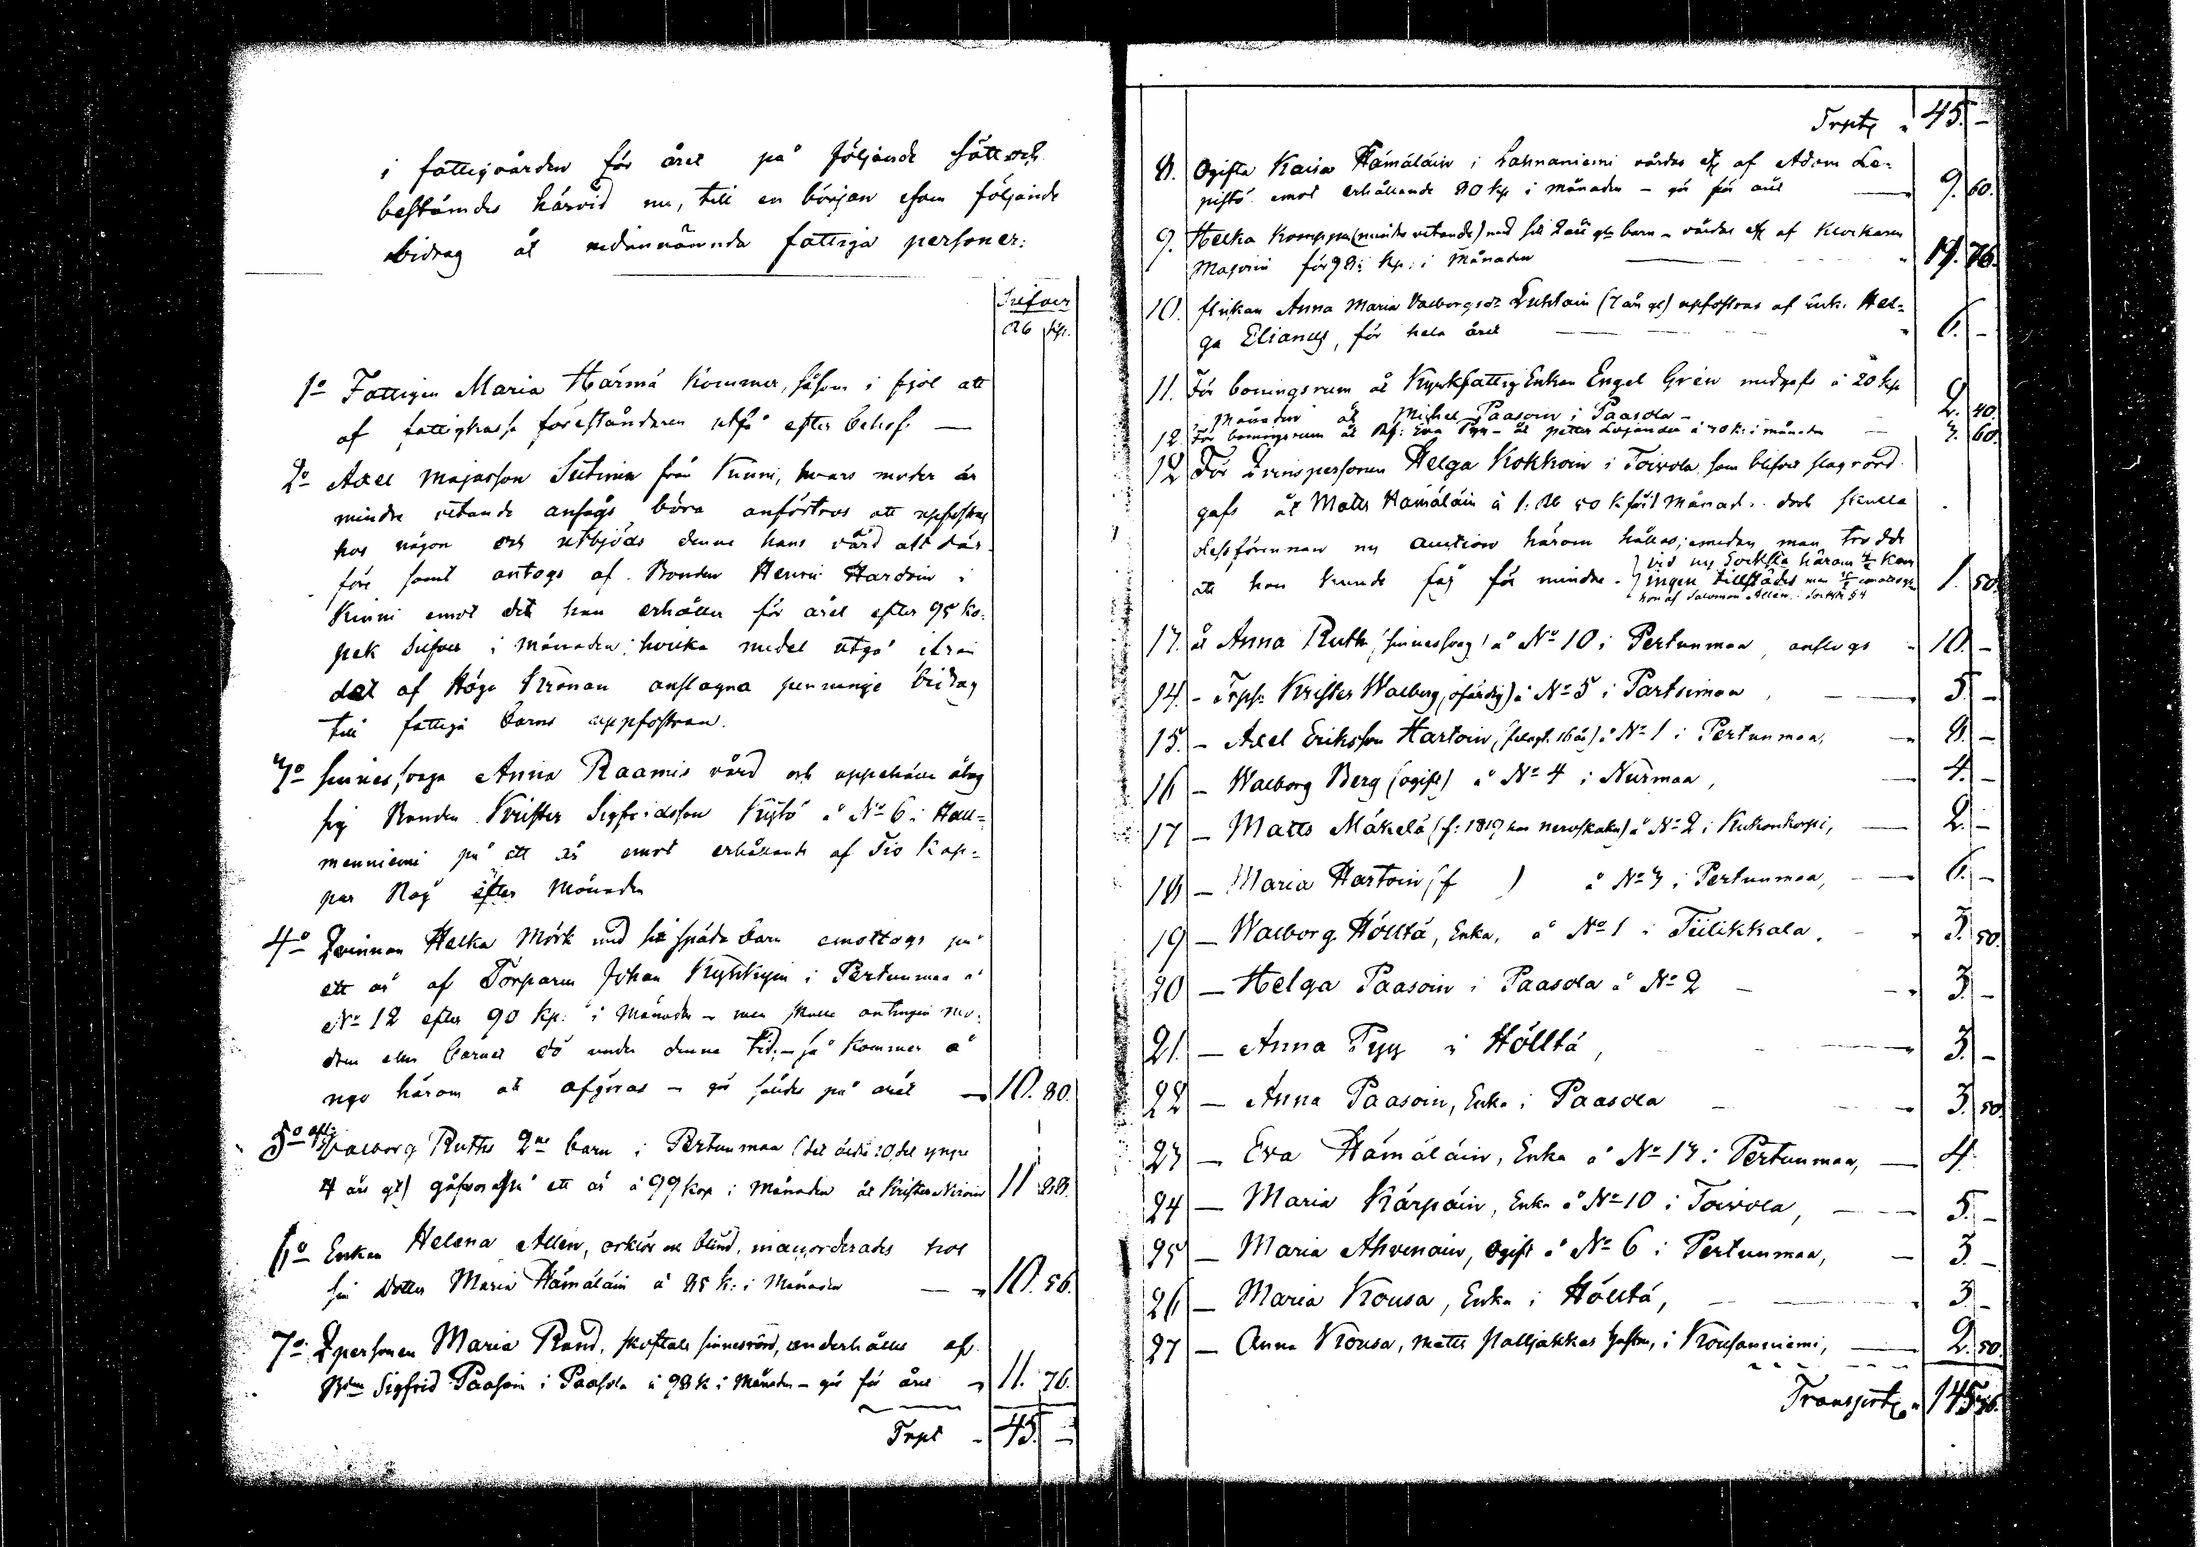 i fattigvården för året på följande sätt och
bestämdes härvid nu, till en början som följande
bidrag åt nedannämnda fattiga personer:
Silfver
Rb kp.
1o Fattigen Maria Härmä kommer, såsom i fjol att
af fattigkasse föreståndaren utfå efter behof. —
2o Axel Majasson Sutinen från Kinni, hvars moder är
mindre vetande ansågs böra anförtros att uppfostras
hos någon och utbjöds denne hans vård allt där
före samt antogs af Bonden Henric Hardoin i
Kinni emot det han erhåller för året efter 95 ko-
pek Silfver i månaden; hvilka medel utgå ifrån
det af Höga Kronan anslagna penninge bidrag
till fattiga barns uppfostran.
3o Sinnessvaga Anna Raamis vård och uppehälle åtog
sig Bonden Krister Sigfridsson Kystö å No 6 i Hall-
menniemi på ett år emot erhållande af Tio Kap-
par Råg efter Månaden
4o Qvinnan Helka Mörk med sit späda barn emottogs på
ett år af Torparen Johan Kyhkyin i Pertunmaa å
No 12 efter 90 Kp: i Månaden – men skulle antingen mo-
dren eller barnet dö under denna tid, – så kommer å
nyo härom att afgöras – gör således på året — 10. 80.
5o Walborg Ruths 2ne barn i Pertunmaa (det äldre 10, det yngre
4 års gl) gåfvos på ett år à 99 kop i Månaden åt Krister Niroin 11 88.
6o Enkan Helena Allén, orklös och blind, inackorderades hos
sin Dotter Maria Hämäläin à 88 k: i Månaden — 10. 56.
7o Qpersonen Maria Rand, sinnesrörd, underhålles af
Bdn Sigfrid Paasoin i Paasola à 98 k i Månaden – gör för året 11. 76.
Trpt 45. —
Trpt 45. —
8. Ogifta Kaisa Hämäläin i Lahnaniemi vårdas af Adam Le-
pistö emot erhållande 80 kp i månaden – gör för året 9. 60.
9. Helka Komppa (mindre vetande) med sit 2 års gla barn – vårdas af Klockaren
Majorin för 98 kp: i Månaden 11. 76.
10. flickan Anna Maria Walborgsdr Luhtain (7 år gl) uppfostras af enk. Hel-
ga Elianus, för hela året 6. —
11. För boningsrum åt Kyrkfattig Enkan Engel Grén medgafs à 20 kp
i månaden åt Michel Paasoin i Paasola – 2. 40.
12 För boningsrum åt Eva Pyy – åt petter à 30 k: i månaden 3. 60.
12 För Qvinspersonen Helga Kokkoin i Toivola, som blifvit slagrörd
gafs åt Matts Hämäläin à 1. Rb 50 k för 1 Månad. dock skulle
dessförinnan ny auction härom hållas; emedan man trodde
att hon kunde fås för mindre.
vid ny Sockensta härom kom
ingen tillstädes men emottogs
hon af Salomon Allén
1. 50.
13. åt Anna Ruth (sinnessvag) å No 10 i Pertunmaa, anslogs 10. —
14. – Krister Walberg, (ofärdig) å No 5 i Partsimaa, 5 —
15. – Axel Eriksson Hartoin, 16 år) å No 1 i Pertunmaa, 8. —
16 – Walborg Berg (ogift) å No 4 i Nurmaa, 4. —
17 – Matts Mäkelä (f: 1819) å No 2 i Kuhonkorpi, 2. —
18 – Maria Hartoin (f ) å No 3 i Pertunmaa, 6. —
19 – Walborg Hölttä, Enka, å No 1 i Tiilikkala. 3. 50.
20 – Helga Paasoin i Paasola å No 2 3. —
21 – Anna Pyy i Hölttä, 3. —
22 – Anna Paasoin, Enka i Paasola 3. 50.
23 – Eva Hämäläin, Enka å No 13 i Pertunmaa, 4.
24 – Maria Kärpäin, Enka å No 10 i Toivola, 5. —
25 – Maria Ahvenain, Ogift å No 6 i Pertunmaa, 3. —
26 – Maria Kousa, Enka i Hölttä, 3. —
27 – Anna Kousa, Matts Halljakkas hustru, i Kousanniemi, 2. 50.
Transport 145 86.